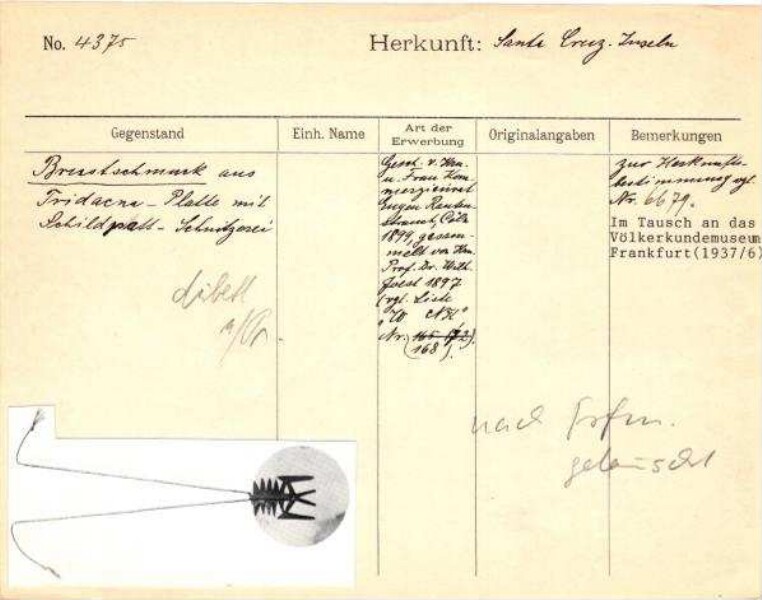 No. 4375 Herkunft: Santa Cruz-Inseln
Gegenstand
Einh. Name
Art der
Erwerbung
Originalangaben
Bemerkungen
Brustschmuck aus
Tridacna-Platte mit
Schildpatt-Schnitzerei
Gesch. v. Hrn.
u. Frau Kom-
merzienrat
Eugen Rauten-
strauch, Cöln
1899, gesam-
melt von Hrn.
Prof. Dr. Wilh.
Joest 1897
(vgl. Liste
Nr.
168).
zur Herkunfts-
bestimmung vgl.
Nr. 6679.
Im Tausch an das
Völkerkundemuseum
Frankfurt(1937/6)
nach
getauscht